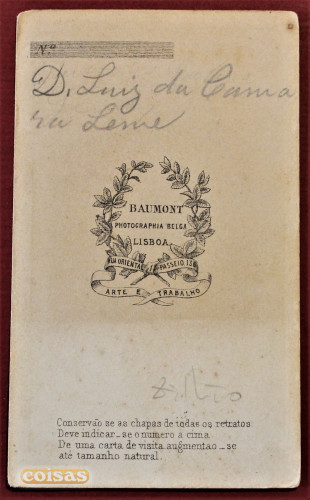 N.º
D. Luiz da Cama
ra Leme
BAUMONT
PHOTOGRAPHIA BELGA
LISBOA
RUA ORIENTAL
PASSEIO, 18
ARTE E TRABALHO
Conservão se as chapas de todas os retratos
Deve indicar_se o numero a cima
De uma carta de visita augmentão_se
até tamanho natural.
coisas